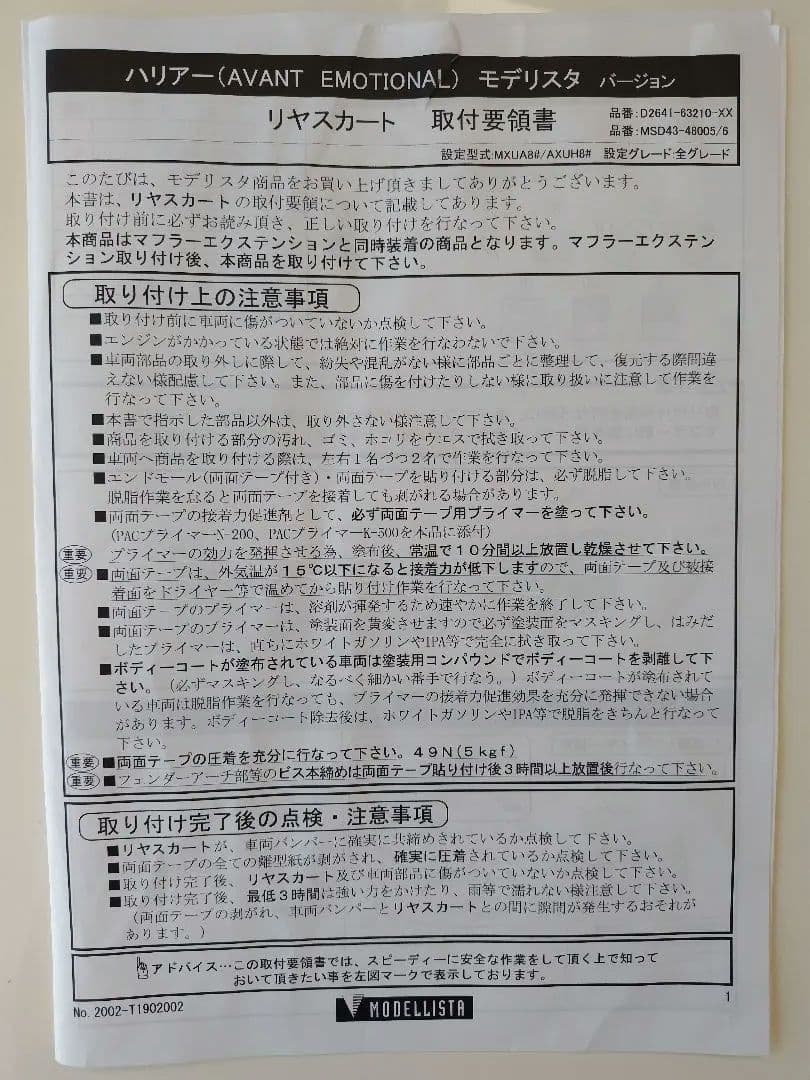 ハリアー(AVANT EMOTIONAL) モデリスタ バージョン
リヤスカート 取付要領書
品番:D2641-63210-XX
品番:MSD43-48005/6
設定型式:MXUA8#/AXUH8# 設定グレード:全グレード
このたびは、モデリスタ商品をお買い上げ頂きましてありがとうございます。
本書は、リヤスカートの取付要領について記載してあります。
取り付け前に必ずお読み頂き、正しい取り付けを行なって下さい。
本商品はマフラーエクステンションと同時装着の商品となります。マフラーエクステン
ション取り付け後、本商品を取り付けて下さい。
取り付け上の注意事項
■取り付け前に車両に傷がついていないか点検して下さい。
■エンジンがかかっている状態では絶対に作業を行なわないで下さい。
■車両部品の取り外しに際して、紛失や混乱がない様に部品ごとに整理して、復元する際間違
えない様配慮して下さい。また、部品に傷を付けたりしない様に取り扱いに注意して作業を
行なって下さい。
■本書で指示した部品以外は、取り外さない様注意して下さい。
■商品を取り付ける部分の汚れ、ゴミ、ホコリをウエスで拭き取って下さい。
■車両へ商品を取り付ける際は、左右1名づつ2名で作業を行なって下さい。
■エンドモール(両面テープ付き)・両面テープを貼り付ける部分は、必ず脱脂して下さい。
脱脂作業を怠ると両面テープを接着しても剥がれる場合があります。
■両面テープの接着力促進剤として、必ず両面テープ用プライマーを塗って下さい。
(PACプライマーN-200、PACプライマーK-500を本品に添付)
重要 プライマーの効力を発揮させる為、塗布後、常温で10分間以上放置し乾燥させて下さい。
重要 ■両面テープは、外気温が15℃以下になると接着力が低下しますので、両面テープ及び被接
着面をドライヤー等で温めてから貼り付け作業を行なって下さい。
■両面テープのプライマーは、溶剤が揮発するため速やかに作業を終了して下さい。
■両面テープのプライマーは、塗装面を黄変させますので必ず塗装面をマスキングし、はみだ
したプライマーは、直ちにホワイトガソリンやIPA等で完全に拭き取って下さい。
■ボディーコートが塗布されている車両は塗装用コンパウンドでボディーコートを剥離して下
さい。(必ずマスキングし、なるべく細かい番手で行なう。)ボディーコートが塗布されて
いる車両は脱脂作業を行なっても、プライマーの接着力促進効果を充分に発揮できない場合
があります。ボディーコート除去後は、ホワイトガソリンやIPA等で脱脂をきちんと行なって
下さい。
重要 ■両面テープの圧着を充分に行なって下さい。49N(5kgf)
重要 ■フェンダーアーチ部等のビス本締めは両面テープ貼り付け後3時間以上放置後行なって下さい。
取り付け完了後の点検・注意事項
■リヤスカートが、車両バンパーに確実に共締めされているか点検して下さい。
■両面テープの全ての離型紙が剥がされ、確実に圧着されているか点検して下さい。
■取り付け完了後、リヤスカート及び車両部品に傷がついていないか点検して下さい。
■取り付け完了後、最低3時間は強い力をかけたり、雨等で濡れない様注意して下さい。
(両面テープの剥がれ、車両バンパーとリヤスカートとの間に隙間が発生するおそれが
あります。)
アドバイス…この取付要領書では、スピーディーに安全な作業をして頂く上で知って
おいて頂きたい事を左図マークで表示しております。
No. 2002-T1902002
MODELLISTA
1